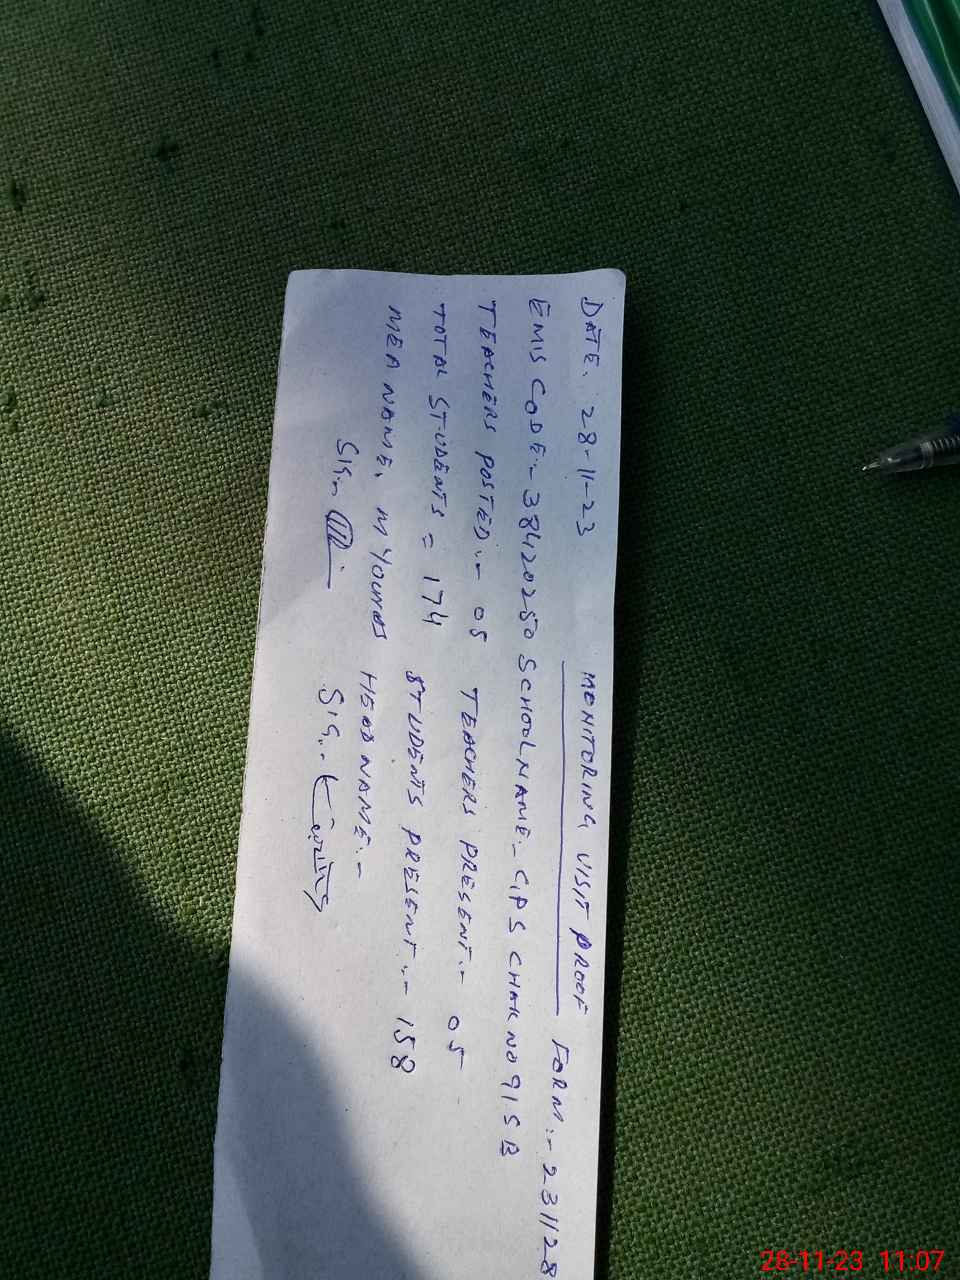 DATE. 28-11-23 MONITORING VISIT PROOF FORM:- 231128
EMIS CODE:- 38420250 SCHOOL NAME:- GPS CHAK NO 91 SB
TEACHERS POSTED:- 05 TEACHERS PRESENT:- 05
TOTAL STUDENTS = 174 STUDENTS PRESENT:- 158
MEA NAME. M YOUNAS HEAD NAME:-
SIG:- SIG:-
28-11-23 11:07